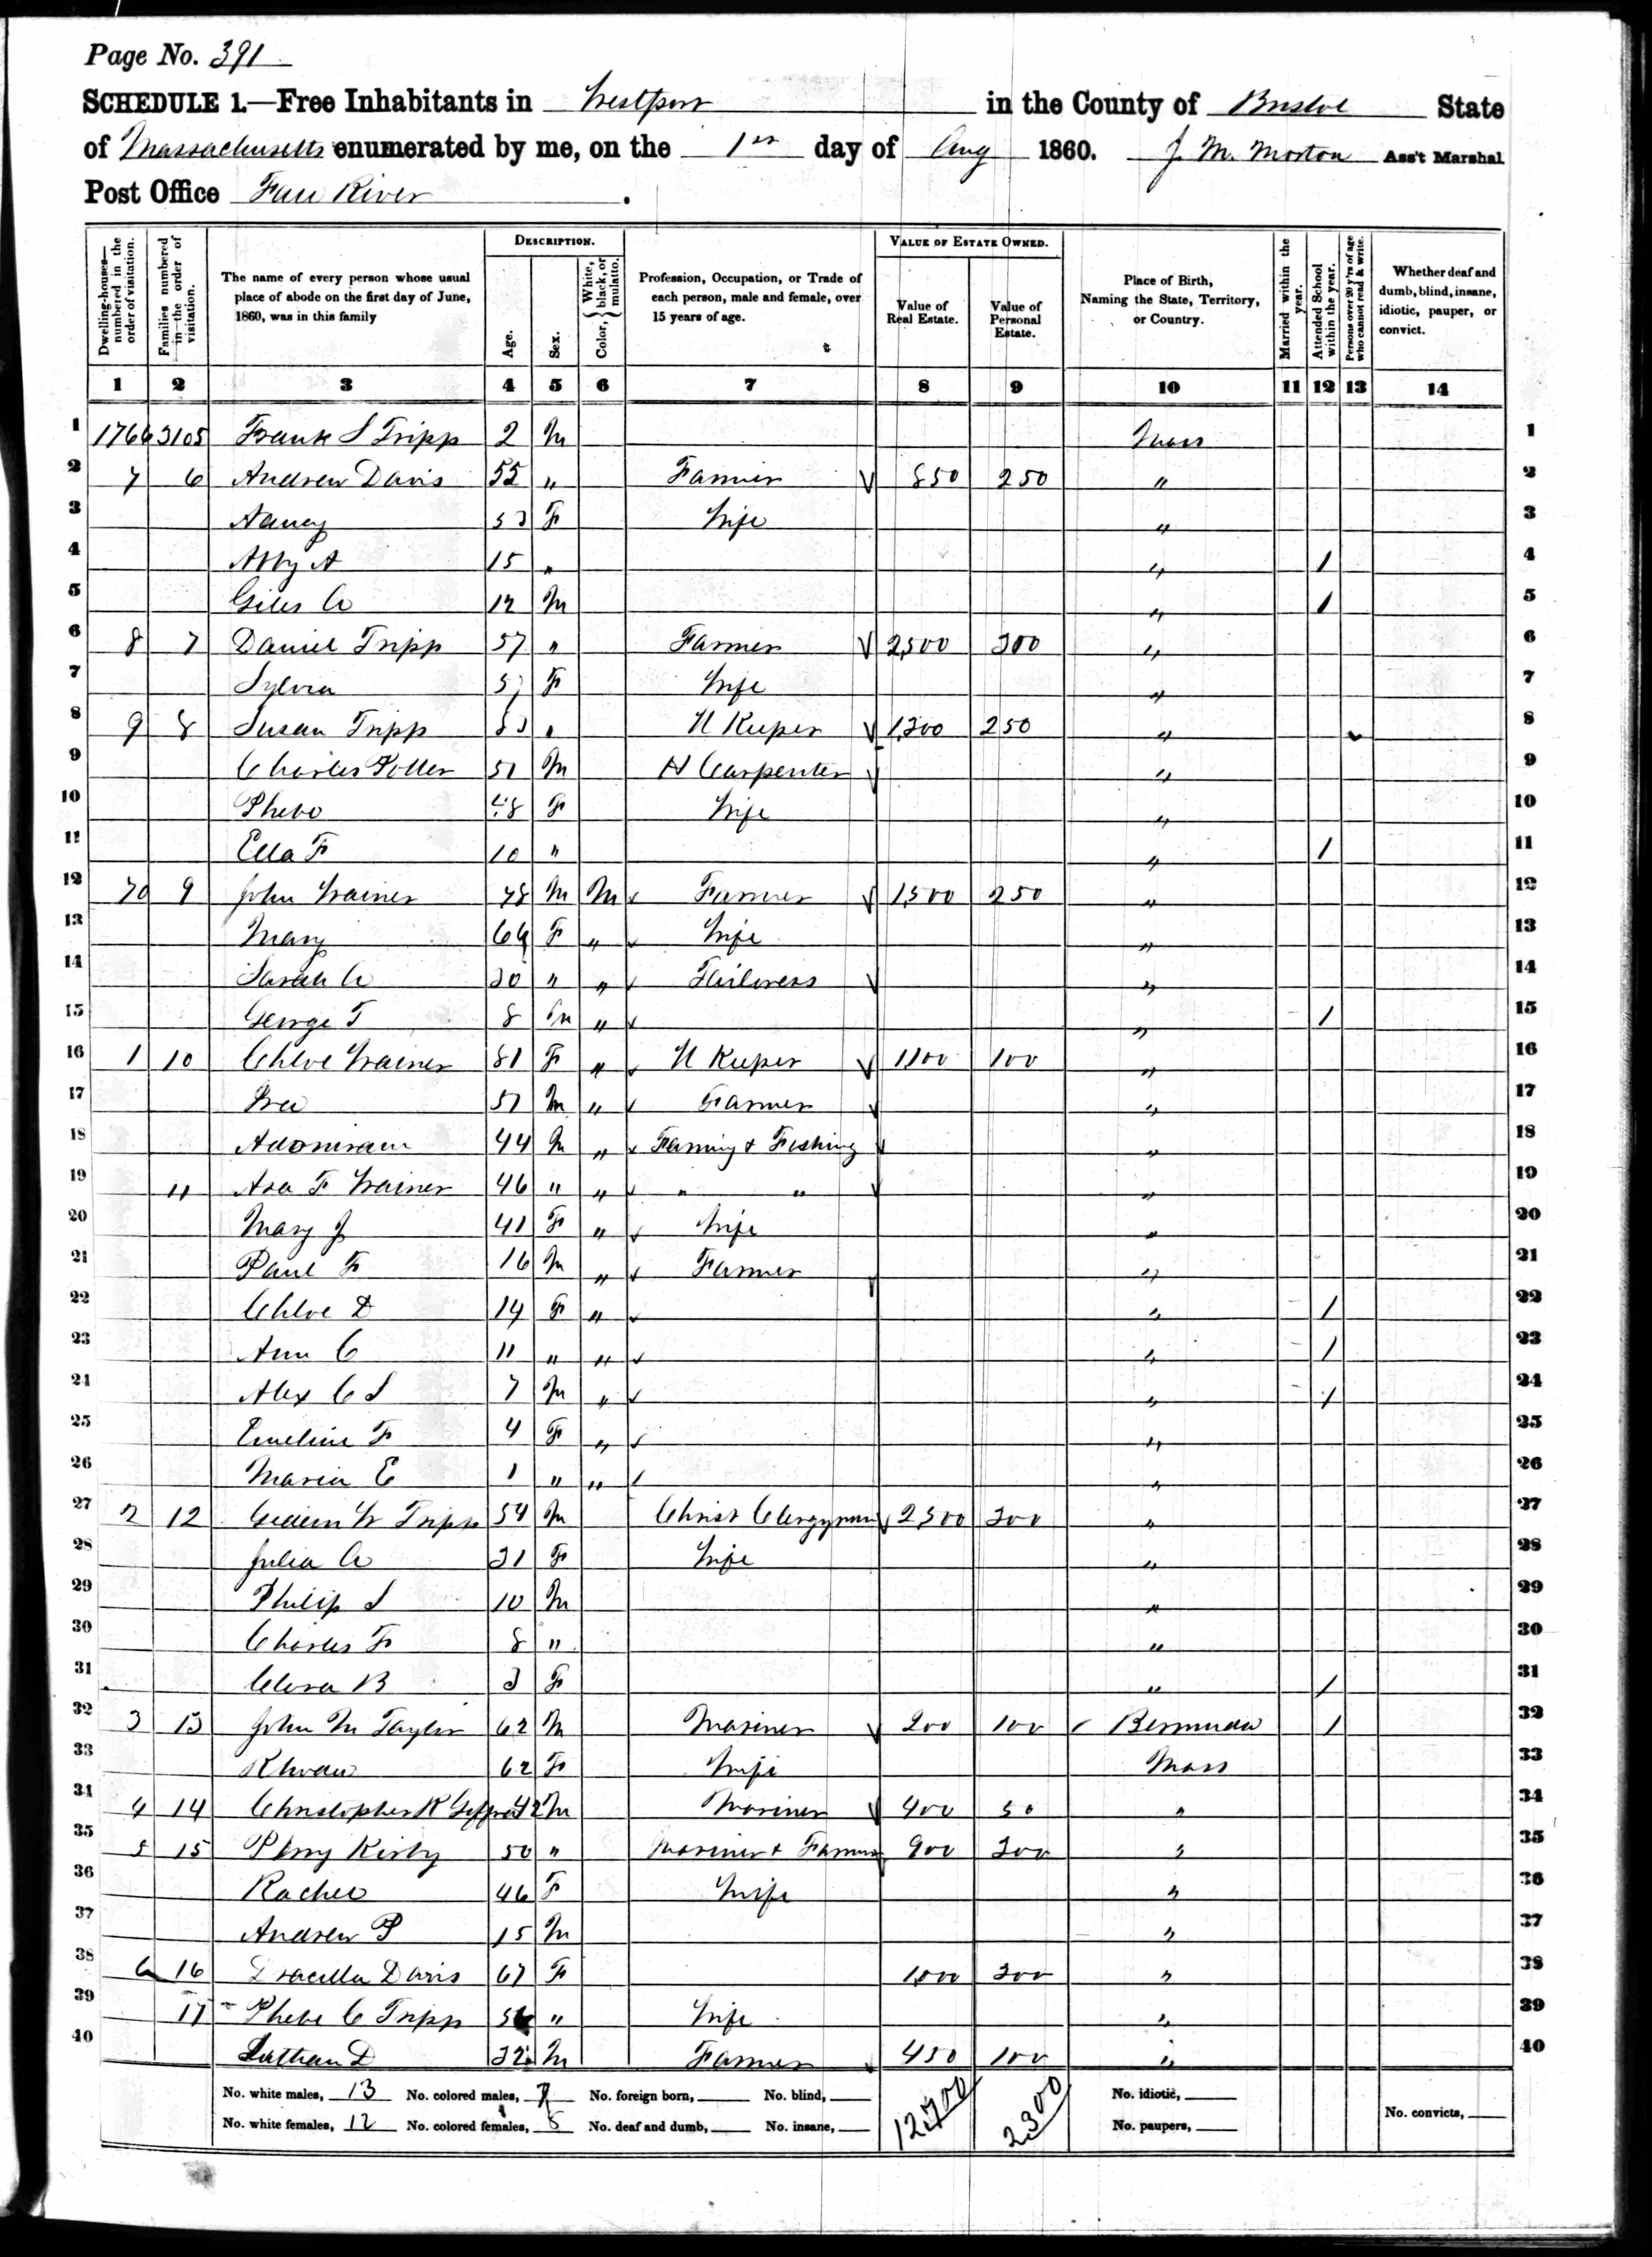 Page No. 391
SCHEDULE 1.—Free Inhabitants in Westport in the County of Bristol State
of Massachusetts enumerated by me, on the 1st day of Aug 1860. J. M. Morton Ass't Marshal
Post Office Fall River.
DESCRIPTION. VALUE OF ESTATE OWNED.
Dwelling-houses—numbered in the order of visitation. Families numbered in the order of visitation. The name of every person whose usual place of abode on the first day of June, 1860, was in this family Age. Sex. Color, { White, black, or mulatto. Profession, Occupation, or Trade of each person, male and female, over 15 years of age. Value of Real Estate. Value of Personal Estate. Place of Birth, Naming the State, Territory, or Country. Married within the year. Attended School within the year. Persons over 20 y'rs of age who cannot read & write. Whether deaf and dumb, blind, insane, idiotic, pauper, or convict.
1 2 3 4 5 6 7 8 9 10 11 12 13 14
1 1766 3105 Frank S Tripp 2 M Mass 1
2 7 6 Andrew Davis 55 " Farmer 850 250 " 2
3 Nancy 53 F Wife " 3
4 Abby A 15 " " / 4
5 Giles A 12 M " / 5
6 8 7 Daniel Tripp 57 " Farmer 2,500 300 " 6
7 Sylvia 57 F Wife " 7
8 9 8 Susan Tripp " H Keeper 1,300 250 " 8
9 Charles Potter 51 M H Carpenter " 9
10 Phebe 48 F Wife " 10
11 Ella F 10 " " / 11
12 70 9 John Wainer 78 M M Farmer 1,500 250 " 12
13 Mary 64 F " Wife " 13
14 Sarah A 30 " " Tailoress " 14
15 George T 8 M " " / 15
16 1 10 Chloe Wainer 81 F " H Keeper 1,100 100 " 16
17 57 M " Farmer " 17
18 Adoniram 44 M " Farming & Fishing " 18
19 11 Asa F Wainer 46 " " " " " 19
20 Mary J 41 F " Wife " 20
21 Paul F 16 M " Farmer " 21
22 Chloe D 14 F " " / 22
23 Ann C 11 " " " / 23
24 Alex C S 7 M " " / 24
25 Emeline F 4 F " " 25
26 Maria E 1 " " " 26
27 2 12 Gideon W Tripp 54 M Christ Clergyman 2,500 300 " 27
28 Julia A 31 F Wife " 28
29 Philip S 10 M " 29
30 Charles F 8 " " 30
31 Clora B 3 F " / 31
32 3 13 John M Taylor 62 M Mariner 200 100 Bermuda / 32
33 Rhoda 62 F Wife Mass 33
34 4 14 Christopher R 42 M Mariner 400 50 " 34
35 5 15 Perry Kirby 50 " Mariner & Farmer 900 300 " 35
36 Rachel 46 F Wife " 36
37 Andrew P 15 M " 37
38 6 16 Davis 67 F 1,000 300 " 38
39 17 Phebe C Tripp " Wife " 39
40 32 M Farmer 450 100 " 40
No. white males, 13 No. colored males, 7 No. foreign born, No. blind, 12,700 2,300 No. idiotic,
No. white females, 12 No. colored females, 8 No. deaf and dumb, No. insane, No. paupers, No. convicts,